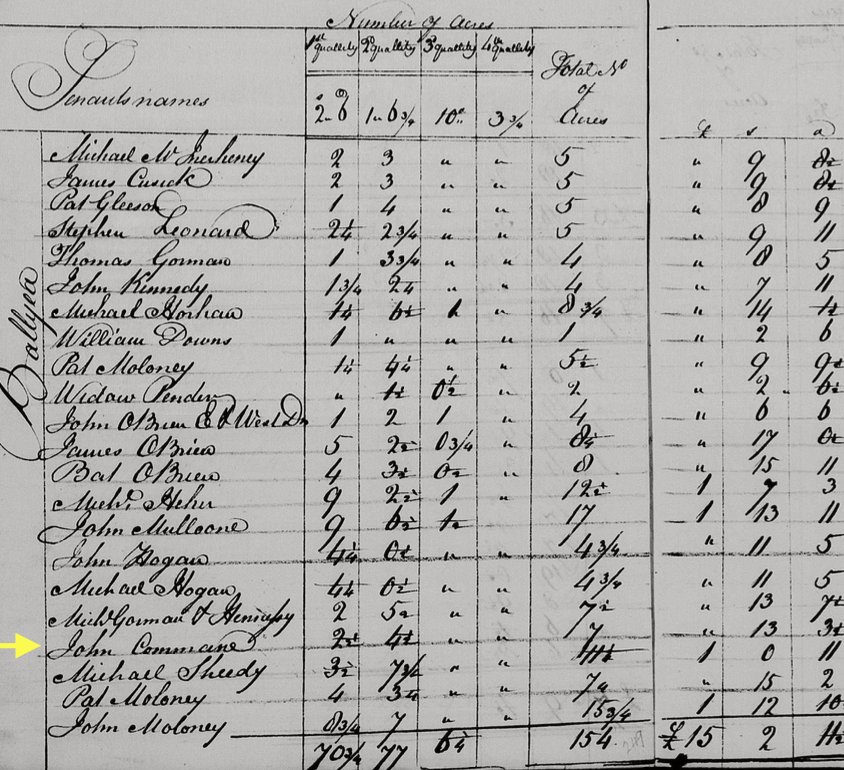 Number of Acres
1st quallity 2d quallity 3d quallity 4th quallity
Tenants names
Total No of Acres
2 " 6 1 " 6 3/4 10 " 3 3/4
£ s d
Ballyea
Michael McInerheney 2 3 " " 5 " 9 8½
James Cusick 2 3 " " 5 " 9 8½
Pat Gleeson 1 4 " " 5 " 8 9
Stephen Leonard 2¼ 2 3/4 " " 5 " 9 11
Thomas Gorman 1 3 3/4 " " 4 " 8 5
John Kennedy 1 3/4 2¼ " " 4 " 7 11
Michael Horhan 1¼ 6½ 1 " 8 3/4 " 14 1½
William Downs 1 " " " 1 " 2 6
Pat Moloney 1¼ 4¼ " " 5½ " 9 9½
Widow Pender " 1½ 0½ " 2 " 2 6½
John OBrien 1 2 1 " 4 " 6 6
James OBrien 5 2½ 0 3/4 " 8¼ " 17 0½
Bat OBrien 4 3½ 0½ " 8 " 15 11
Michl. Heher 9 2½ 1 " 12½ 1 7 3
John Mulloone 9 6½ 1½ 17 1 13 11
John Hogan 4¼ 0½ " " 4 3/4 " 11 5
Michael Hogan 4¼ 0½ " " 4 3/4 " 11 5
Michl Gorman & Hennessy 2 5½ " " 7½ " 13 7½
John Commane 2½ 4½ " " 7 " 13 3½
Michael Sheedy 3½ 7 3/4 " " 11¼ 1 0 11
Pat Moloney 4 3¼ " " 7 " 15 2
John Moloney 8 3/4 7 " " 15 3/4 1 12 10
70 3/4 77 6¼ 154 £ 15 2 11½